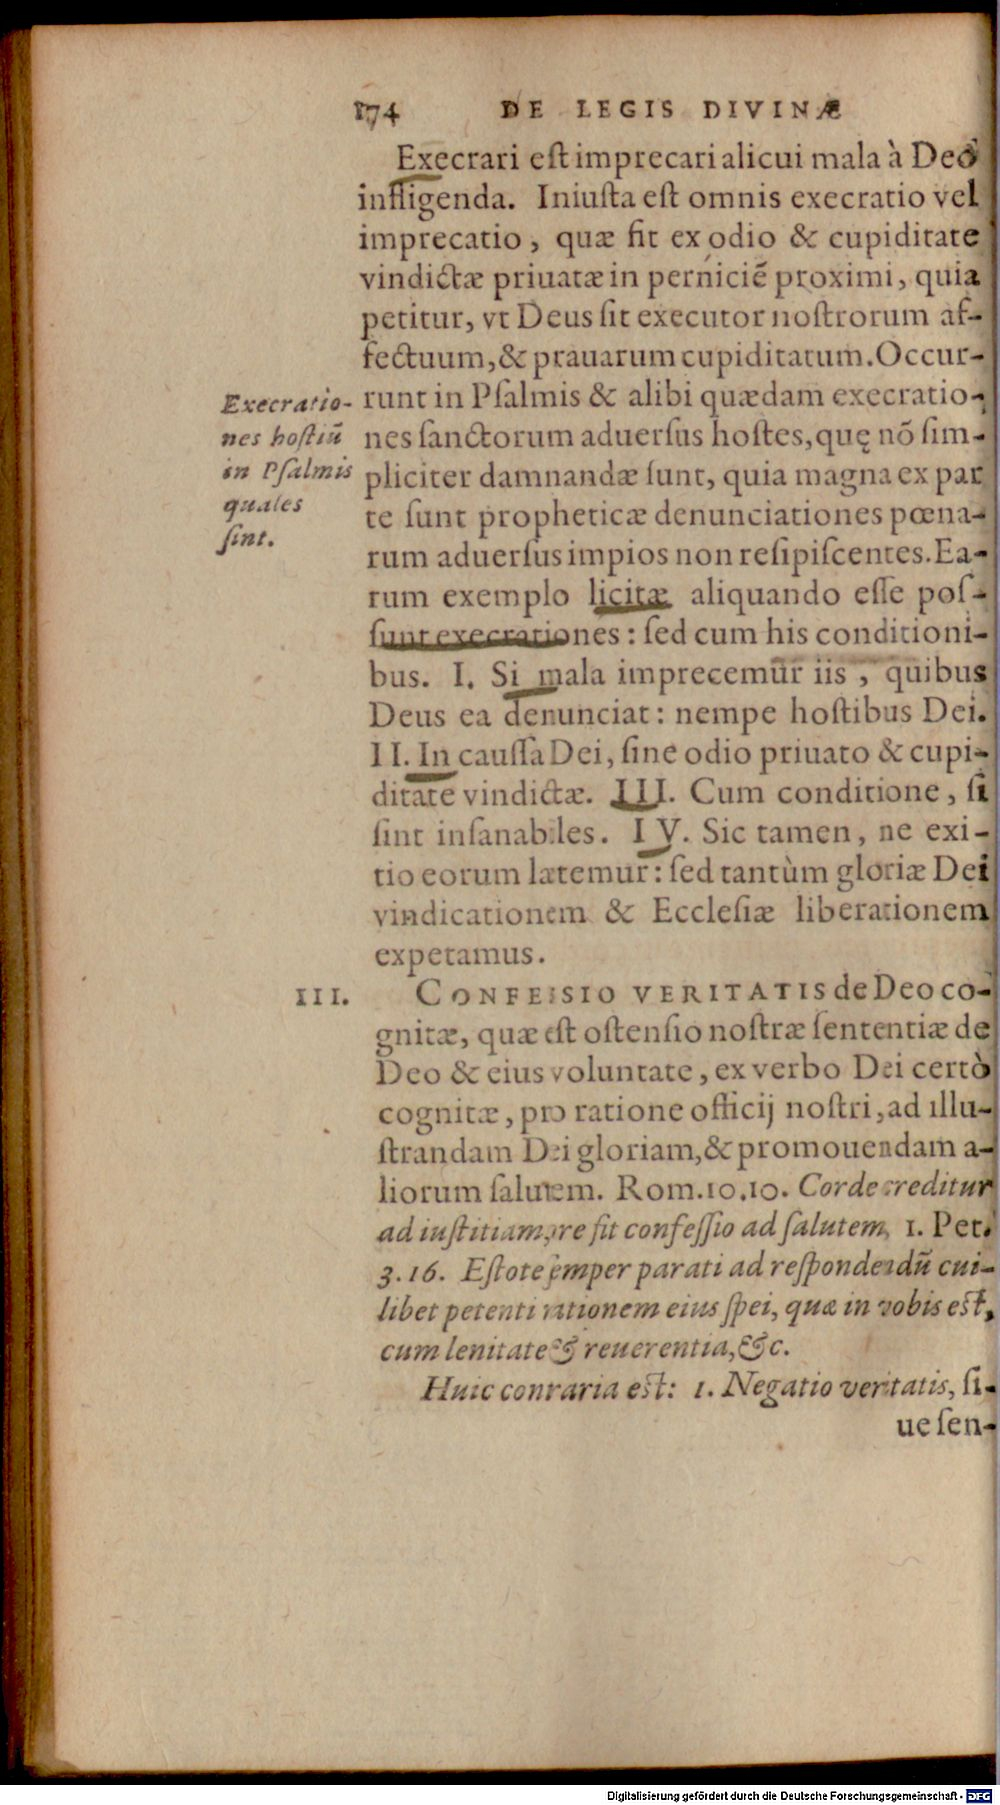 174 DE LEGIS DIVINÆ
Execrari eſt imprecari alicui mala à Deo
infligenda. Iniuſta eſt omnis execratio vel
imprecatio, quæ fit ex odio & cupiditate
vindictæ priuatæ in perniciē proximi, quia
petitur, vt Deus ſit executor noſtrorum af-
fectuum, & prauarum cupiditatum. Occur-
runt in Pſalmis & alibi quædam execratio-
nes ſanctorum aduerſus hoſtes, quę nō ſim-
pliciter damnandæ ſunt, quia magna ex par
te ſunt propheticæ denunciationes pœna-
rum aduerſus impios non reſipiſcentes. Ea-
rum exemplo licitæ aliquando eſſe poſ-
ſunt execrationes: ſed cum his conditioni-
bus. I. Si mala imprecemur iis, quibus
Deus ea denunciat: nempe hoſtibus Dei.
II. In cauſſa Dei, ſine odio priuato & cupi-
ditate vindictæ. III. Cum conditione, ſi
ſint inſanabiles. IV. Sic tamen, ne exi-
tio eorum lætemur: ſed tantùm gloriæ Dei
vindicationem & Eccleſiæ liberationem
expetamus.
Execratio-
nes hoſtiū
in Pſalmis
quales
ſint.
III. CONFESSIO VERITATIS de Deo co-
gnitæ, quæ eſt oſtenſio noſtræ ſententiæ de
Deo & eius voluntate, ex verbo Dei certò
cognitæ, pro ratione officij noſtri, ad illu-
ſtrandam Dei gloriam, & promouendam a-
liorum ſalutem. Rom. 10. 10. Corde creditur
ad iuſtitiam, ore fit confeſſio ad ſalutem, 1. Pet.
3. 16. Eſtote ſemper parati ad reſpondendū cui-
libet petenti rationem eius ſpei, quæ in vobis eſt,
cum lenitate & reuerentia, &c.
Huic conraria eſt: 1. Negatio veritatis, ſi-
ue ſen-
Digitalisierung gefördert durch die Deutsche Forschungsgemeinschaft - DFG